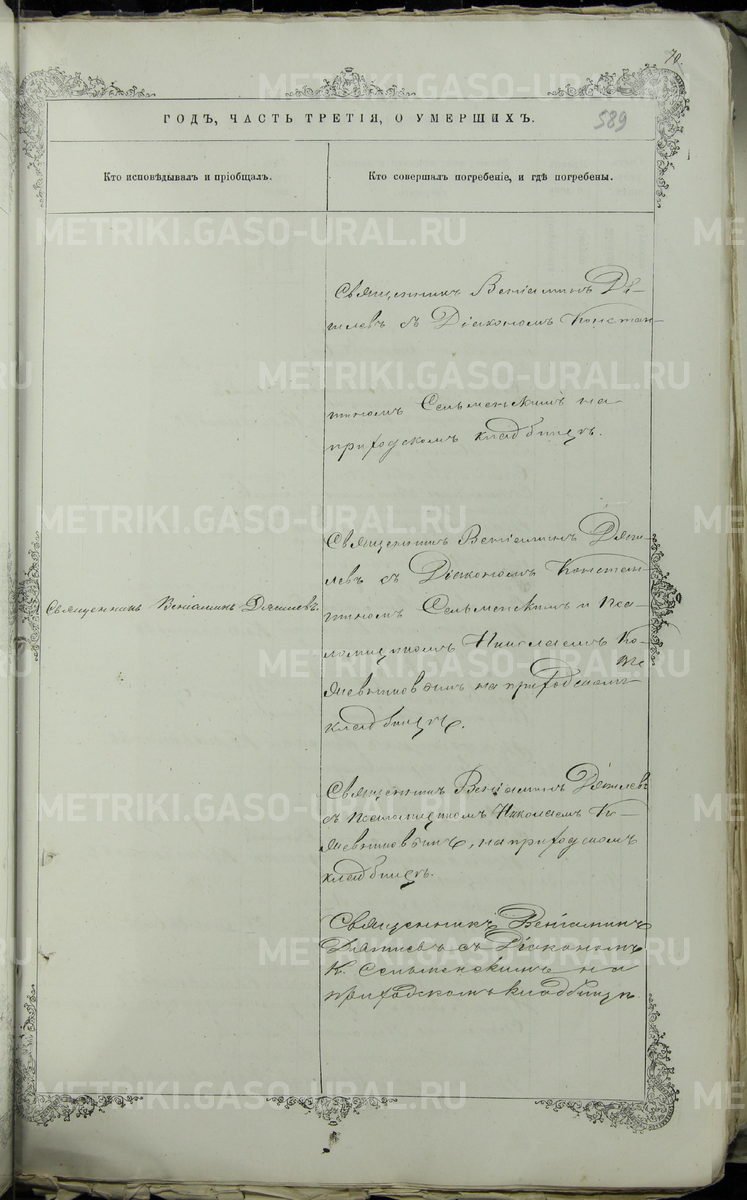 70
ГОДЪ, ЧАСТЬ ТРЕТІЯ, О УМЕРШИХЪ.
589
Кто исповѣдывалъ и пріобщалъ.
Кто совершалъ погребеніе, и гдѣ погребены.
Священникъ Веніаминъ Дя-
гилевъ съ Діакономъ Констан-
тиномъ Сельменскимъ на
приходскомъ кладбищѣ.
Священникъ Веніаминъ Дяги-
левъ съ Діакономъ Констан-
тиномъ Сельменскимъ и Пса-
ломщикомъ Николаемъ Ко-
на приходскомъ
кладбищѣ.
Священникъ Веніаминъ Дягилевъ.
Священникъ Веніаминъ Дягилевъ
съ Псаломщикомъ Николаемъ Ко-
на приходскомъ
кладбищѣ.
Священникъ Веніаминъ
Дягилевъ съ Діакономъ
К. Сельменскимъ на
приходскомъ кладбищѣ
METRIKI.GASO-URAL.RU